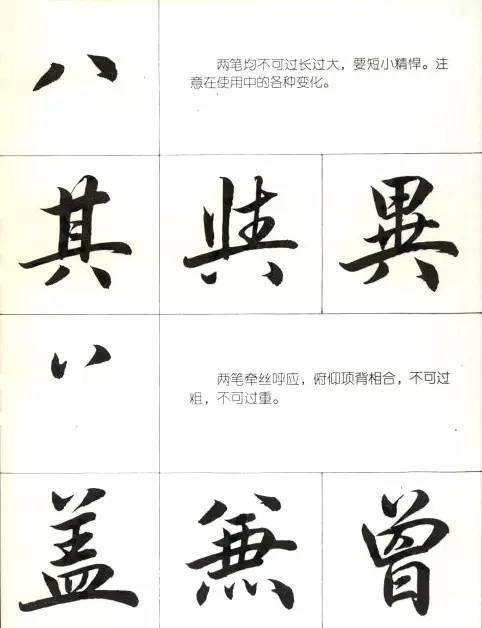 八
两笔均不可过长过大，要短小精悍。注
意在使用中的各种变化。
其 與 異
丷
两笔牵丝呼应，俯仰项背相合，不可过
粗，不可过重。
盖 兼 曾